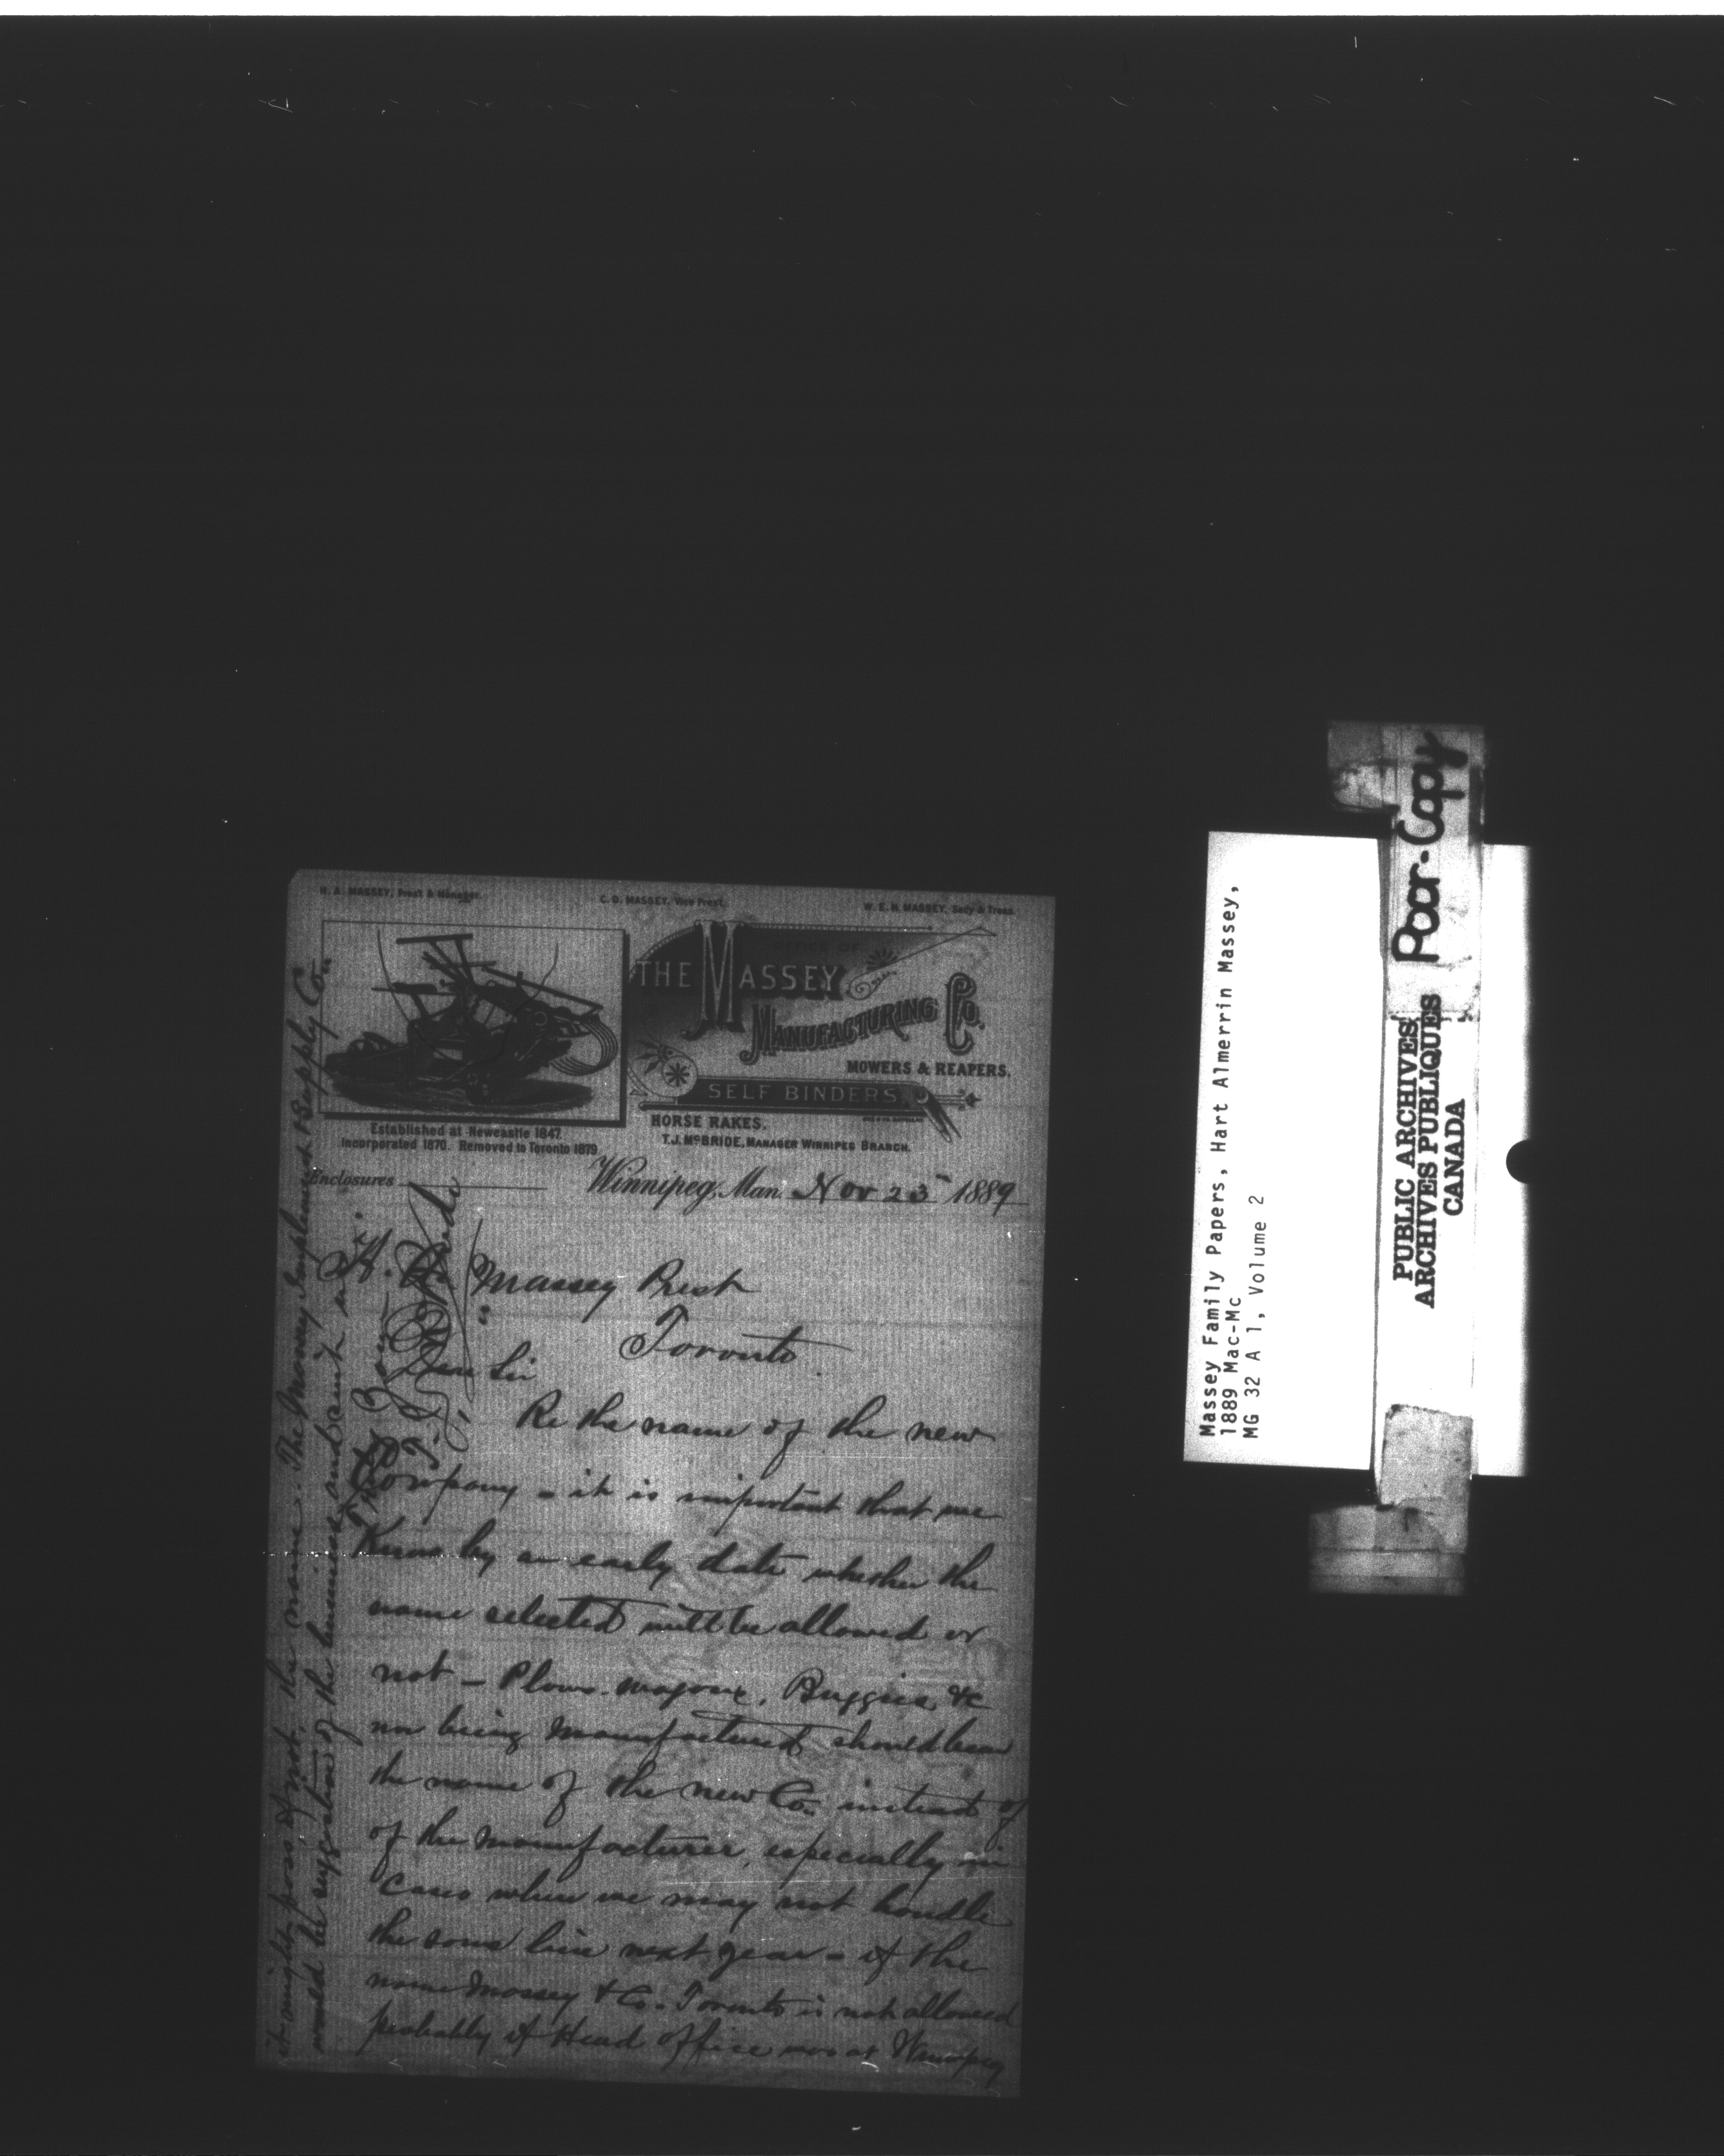 H. A. MASSEY, Prest & Manager.
C. D. MASSEY, Vice Prest.
W. E. H. MASSEY, Secy & Treas.
OFFICE OF
THE MASSEY
MANUFACTURING CO.
MOWERS & REAPERS.
SELF BINDERS
HORSE RAKES.
T.J. McBRIDE, MANAGER WINNIPEG BRANCH.
Established at Newcastle 1847
Incorporated 1870. Removed to Toronto 1879
Enclosures
Winnipeg, Man. Nov 23 1889
H. A. Massey Prest
Toronto
Dear Sir
Re the name of the new
Company - it is important that we
Know by an early date whether the
name selected will be allowed or
not - Plows. wagons, Buggies, &c
now being manufactured should bear
the name of the new Co. instead of
of the manufacturer, especially in
cases where we may not handle
the same line next year - if the
name Massey & Co. Toronto is not allowed
probably if Head office was at Winnipeg
it might pass if not, the name. The Massey Implement & Supply Co.
would be suggestive of the business and
Yours Truly
T. J. McBride
Massey Family Papers, Hart Almerrin Massey,
1889 Mac-Mc
MG 32 A 1, Volume 2
Poor-Copy
PUBLIC ARCHIVES
ARCHIVES PUBLIQUES
CANADA